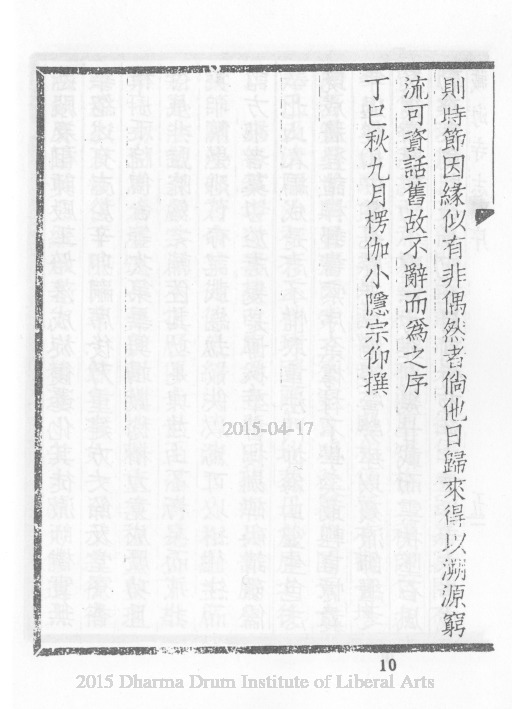 則時節因緣似有非偶然者倘他日歸來得以溯源窮
流可資話舊故不辭而為之序
丁巳秋九月楞伽小隱宗仰撰
2015-04-17
10
2015 Dharma Drum Institute of Liberal Arts